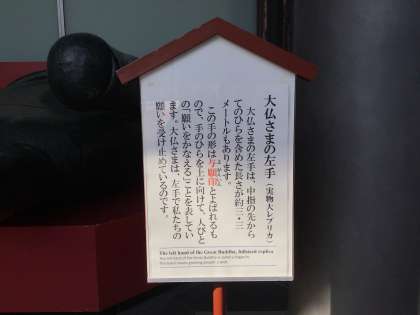 大仏さまの左手（実物大レプリカ）
大仏さまの左手は、中指の先から
てのひらを含めた長さが約三・三
メートルもあります。
この手の形は与願印とよばれるも
ので、手のひらを上に向けて、人びと
の「願いをかなえる」ことを表してい
ます。大仏さまは、左手で私たちの
願いを受け止めているのです。
The left hand of the Great Buddha, fullsized replica